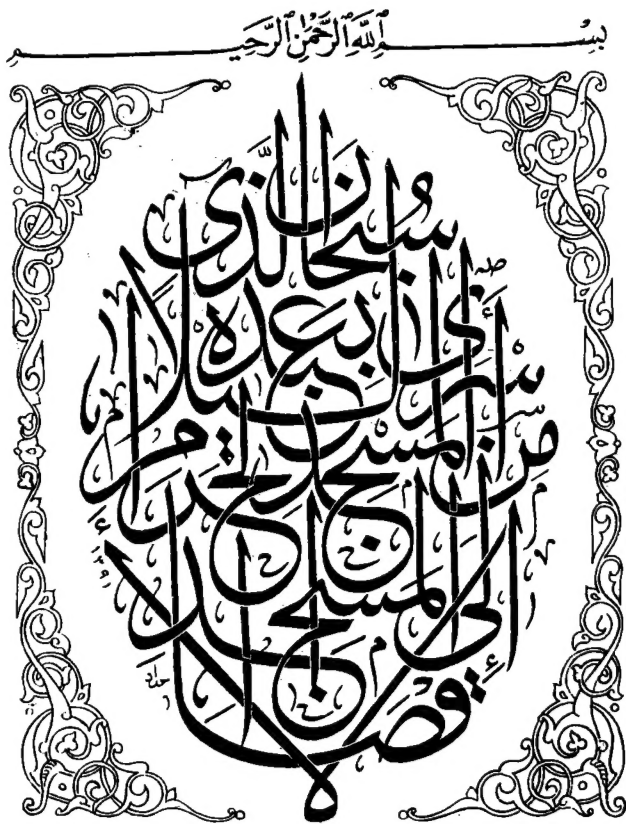 بِسْمِ ٱللَّهِ ٱلرَّحْمَٰنِ ٱلرَّحِيمِ
سُبْحَانَ الَّذِي
أَسْرَىٰ بِعَبْدِهِ لَيْلًا
مِنَ الْمَسْجِدِ الْحَرَامِ
إِلَى الْمَسْجِدِ
الْأَقْصَا
حامد
١٣٩١